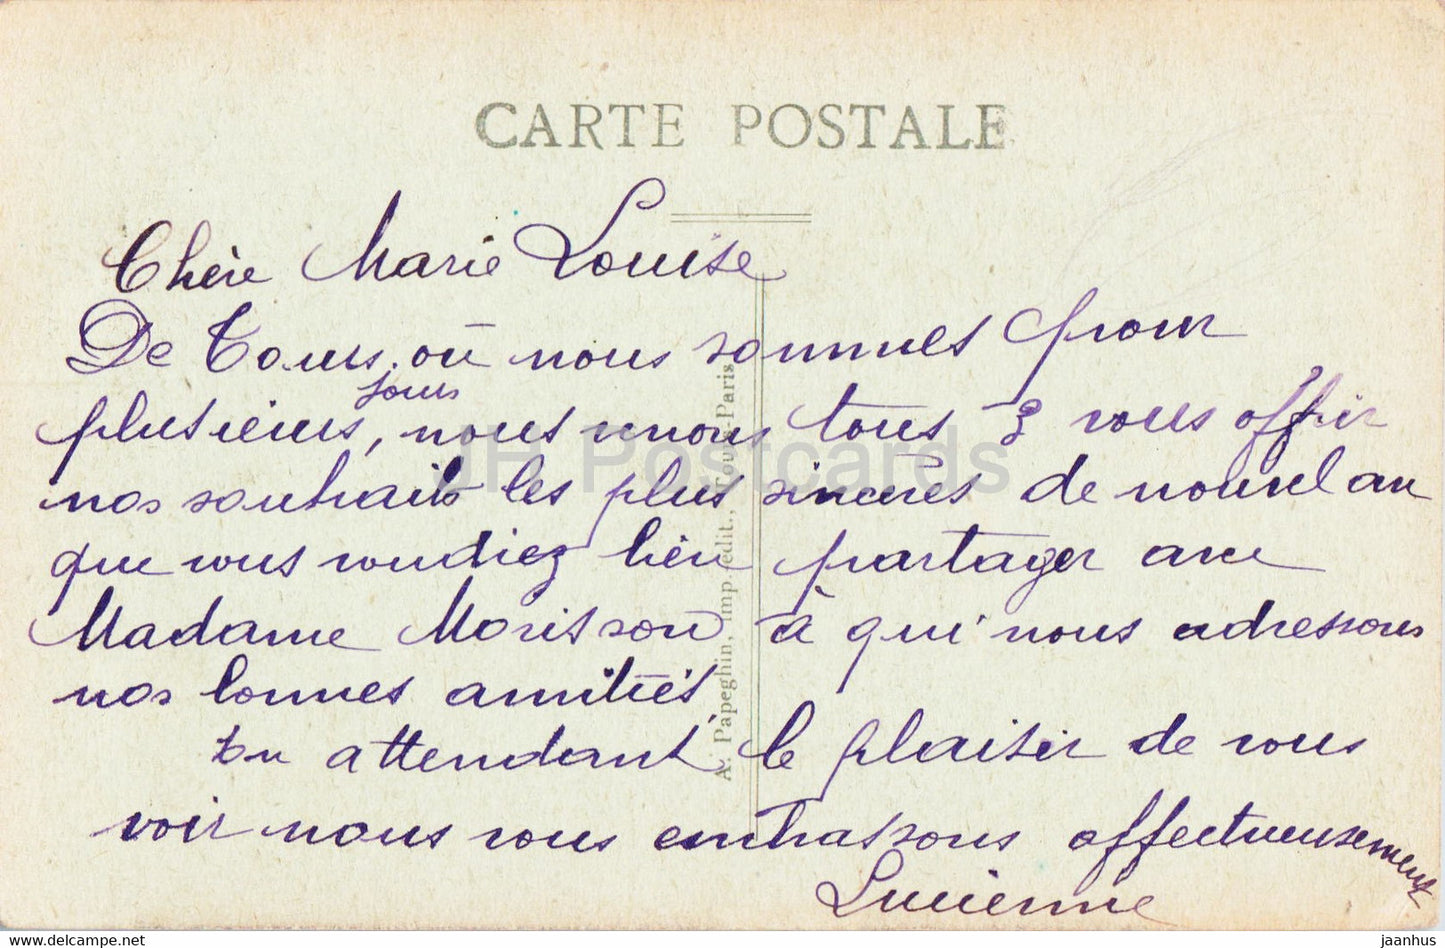 CARTE POSTALE
Chère Marie Louise
De Tours, où nous sommes pour
jours
plusieurs, nous nous tous 3 vous offrir
nos souhaits les plus sincères de nouvel an
que vous voudiez bien partager avec
Madame Morisson à qui nous adressons
nos bonnes amitiés,
En attendant le plaisir de vous
voir nous vous embrassons affectueusement
Lucienne
A. Papeghin, imp. édit., Tours Paris
JH Postcards
www.delcampe.net
jaanhus